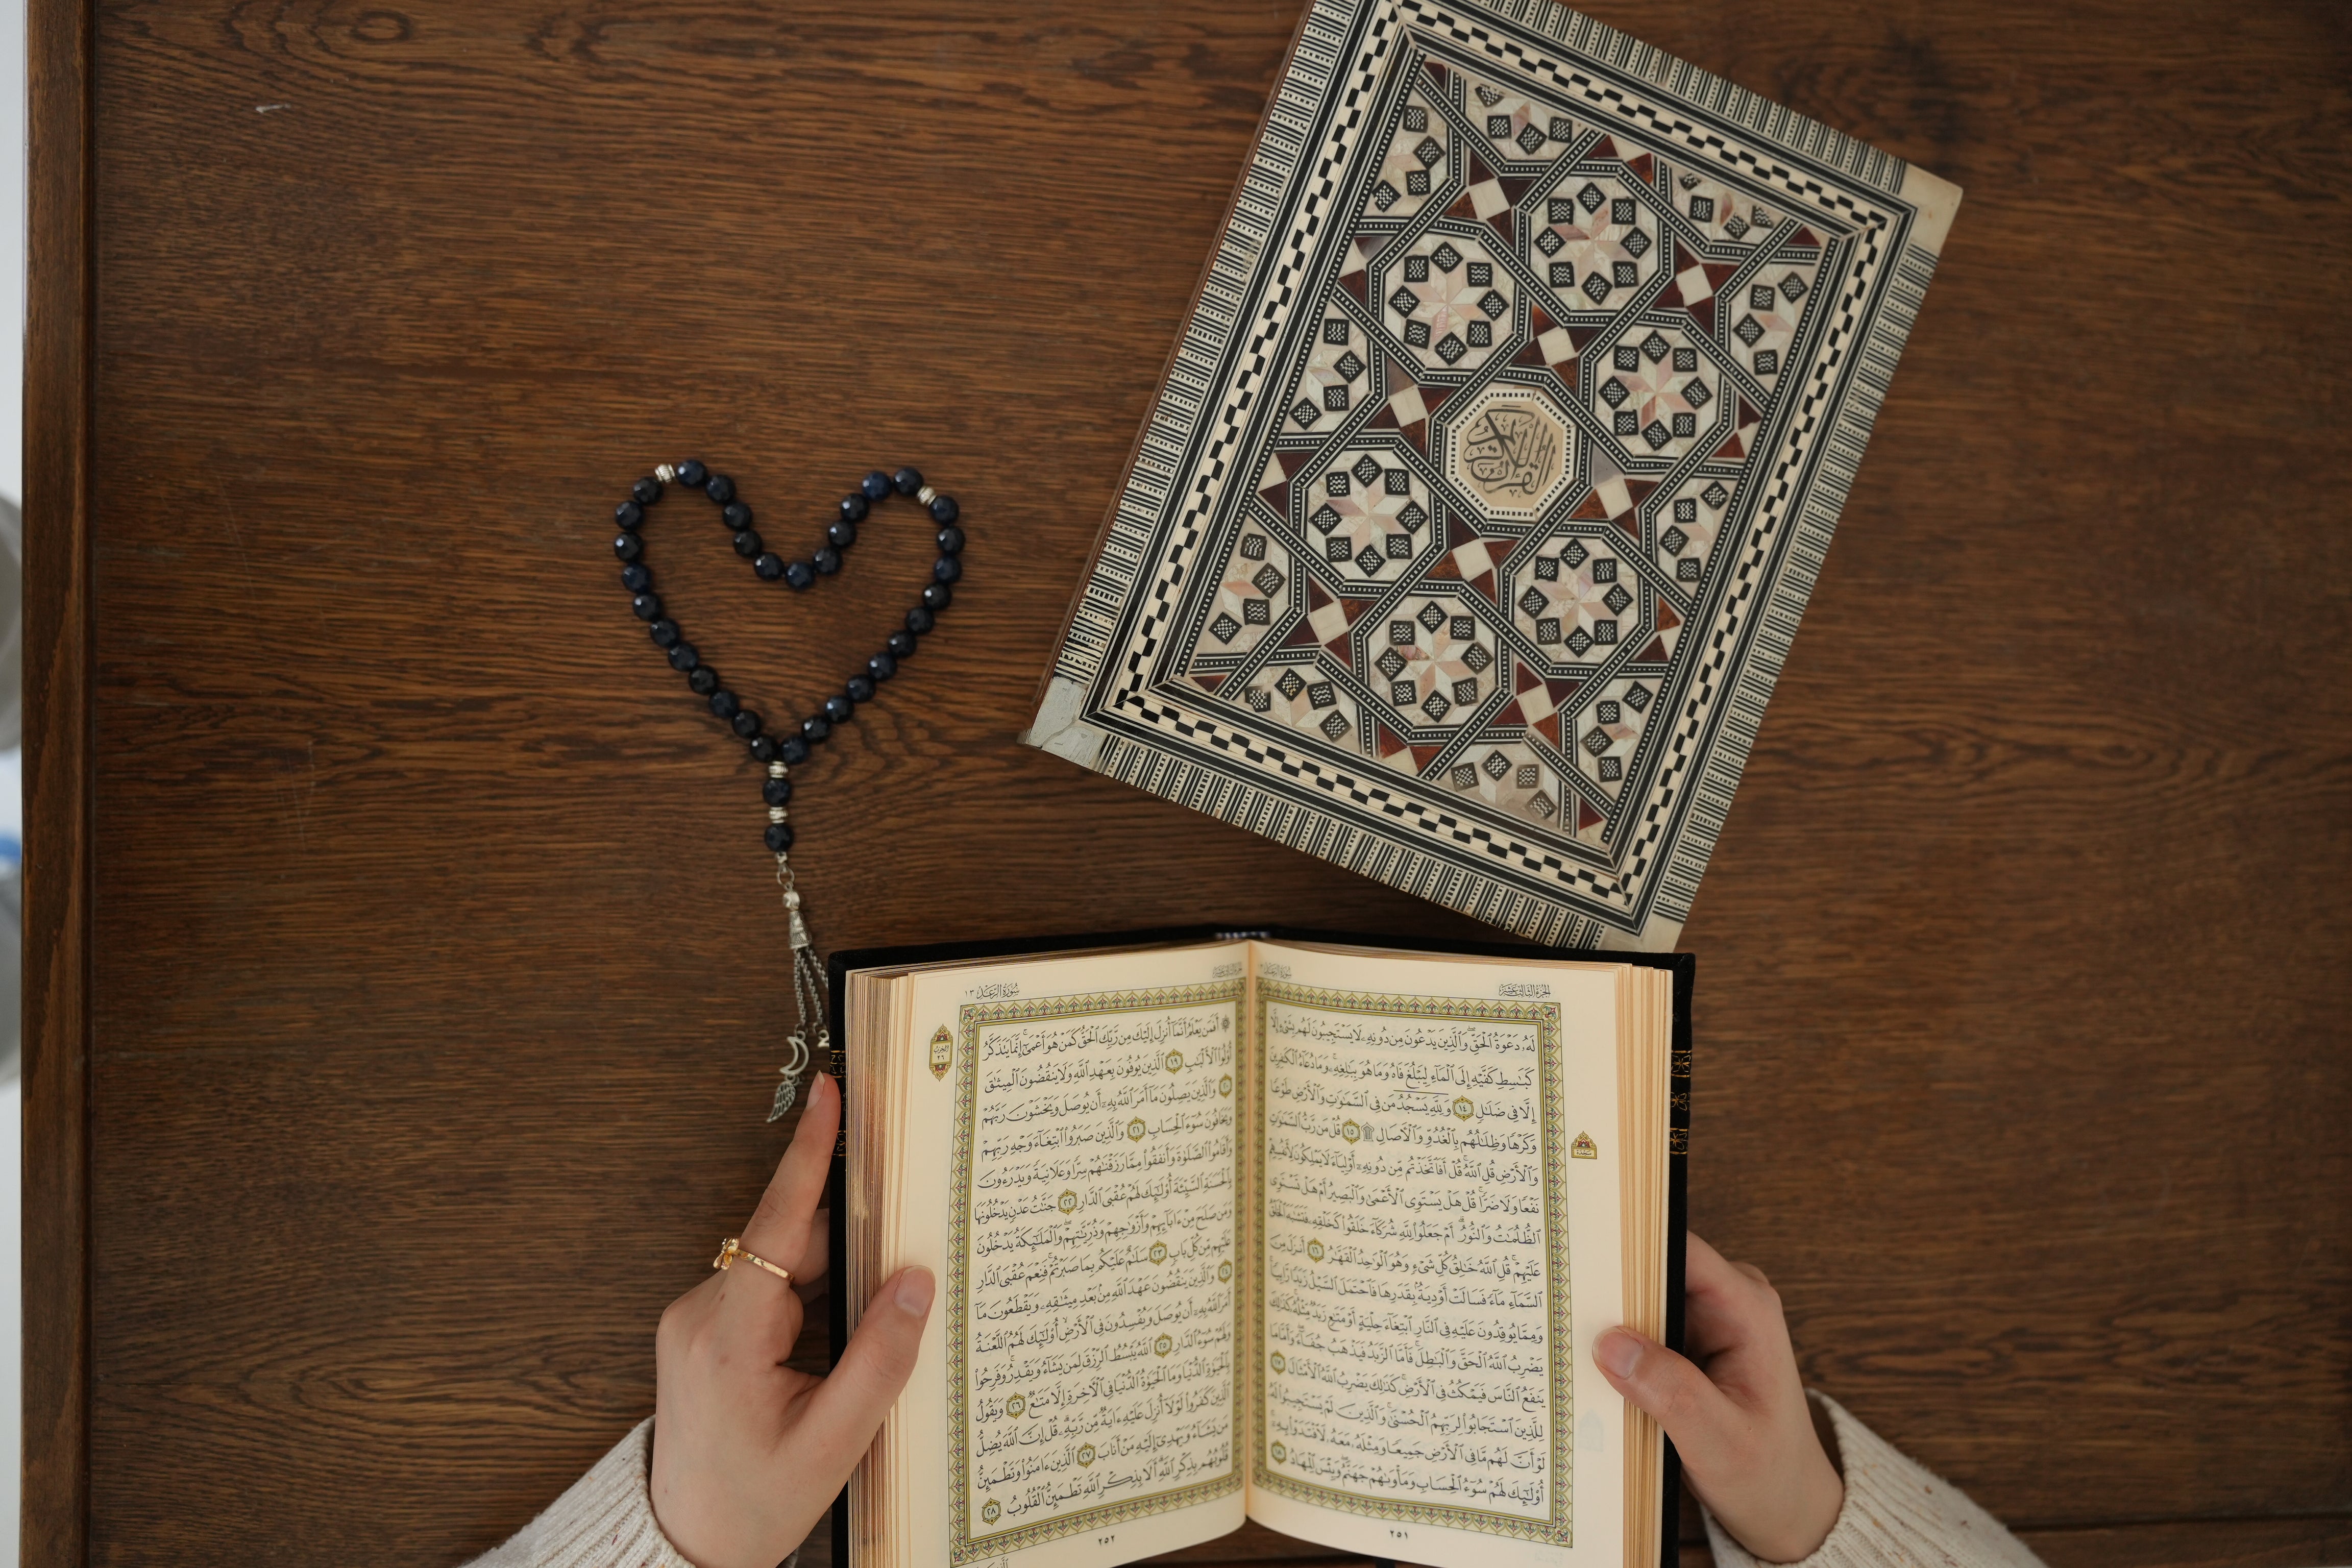 القرآن الكريم
الجزء الثالث عشر
سورة الرعد
لَهُۥ دَعْوَةُ ٱلْحَقِّ وَٱلَّذِينَ يَدْعُونَ مِن دُونِهِۦ لَا يَسْتَجِيبُونَ لَهُم بِشَىْءٍ إِلَّا
كَبَٰسِطِ كَفَّيْهِ إِلَى ٱلْمَآءِ لِيَبْلُغَ فَاهُ وَمَا هُوَ بِبَٰلِغِهِۦ وَمَا دُعَآءُ ٱلْكَٰفِرِينَ
إِلَّا فِى ضَلَٰلٍ ١٤ وَلِلَّهِ يَسْجُدُ مَن فِى ٱلسَّمَٰوَٰتِ وَٱلْأَرْضِ طَوْعًا
وَكَرْهًا وَظِلَٰلُهُم بِٱلْغُدُوِّ وَٱلْأَصَالِ ۩ ١٥ قُلْ مَن رَّبُّ ٱلسَّمَٰوَٰتِ
وَٱلْأَرْضِ قُلِ ٱللَّهُ قُلْ أَفَٱتَّخَذْتُم مِّن دُونِهِۦٓ أَوْلِيَآءَ لَا يَمْلِكُونَ لِأَنفُسِهِمْ
نَفْعًا وَلَا ضَرًّا قُلْ هَلْ يَسْتَوِى ٱلْأَعْمَىٰ وَٱلْبَصِيرُ أَمْ هَلْ تَسْتَوِى
ٱلظُّلُمَٰتُ وَٱلنُّورُ أَمْ جَعَلُوا۟ لِلَّهِ شُرَكَآءَ خَلَقُوا۟ كَخَلْقِهِۦ فَتَشَٰبَهَ ٱلْخَلْقُ
عَلَيْهِمْ قُلِ ٱللَّهُ خَٰلِقُ كُلِّ شَىْءٍ وَهُوَ ٱلْوَٰحِدُ ٱلْقَهَّٰرُ ١٦ أَنزَلَ مِنَ
ٱلسَّمَآءِ مَآءً فَسَالَتْ أَوْدِيَةٌۢ بِقَدَرِهَا فَٱحْتَمَلَ ٱلسَّيْلُ زَبَدًا رَّابِيًا
وَمِمَّا يُوقِدُونَ عَلَيْهِ فِى ٱلنَّارِ ٱبْتِغَآءَ حِلْيَةٍ أَوْ مَتَٰعٍ زَبَدٌ مِّثْلُهُۥ كَذَٰلِكَ
يَضْرِبُ ٱللَّهُ ٱلْحَقَّ وَٱلْبَٰطِلَ فَأَمَّا ٱلزَّبَدُ فَيَذْهَبُ جُفَآءً وَأَمَّا مَا
يَنفَعُ ٱلنَّاسَ فَيَمْكُثُ فِى ٱلْأَرْضِ كَذَٰلِكَ يَضْرِبُ ٱللَّهُ ٱلْأَمْثَالَ ١٧
لِلَّذِينَ ٱسْتَجَابُوا۟ لِرَبِّهِمُ ٱلْحُسْنَىٰ وَٱلَّذِينَ لَمْ يَسْتَجِيبُوا۟ لَهُۥ
لَوْ أَنَّ لَهُم مَّا فِى ٱلْأَرْضِ جَمِيعًا وَمِثْلَهُۥ مَعَهُۥ لَٱفْتَدَوْا۟ بِهِۦٓ
أُو۟لَٰٓئِكَ لَهُمْ سُوٓءُ ٱلْحِسَابِ وَمَأْوَىٰهُمْ جَهَنَّمُ وَبِئْسَ ٱلْمِهَادُ ١٨
٢٥١
سورة الرعد ١٣
۞ أَفَمَن يَعْلَمُ أَنَّمَآ أُنزِلَ إِلَيْكَ مِن رَّبِّكَ ٱلْحَقُّ كَمَنْ هُوَ أَعْمَىٰٓ إِنَّمَا يَتَذَكَّرُ
أُو۟لُوا۟ ٱلْأَلْبَٰبِ ١٩ ٱلَّذِينَ يُوفُونَ بِعَهْدِ ٱللَّهِ وَلَا يَنقُضُونَ ٱلْمِيثَٰقَ
٢٠ وَٱلَّذِينَ يَصِلُونَ مَآ أَمَرَ ٱللَّهُ بِهِۦٓ أَن يُوصَلَ وَيَخْشَوْنَ رَبَّهُمْ
وَيَخَافُونَ سُوٓءَ ٱلْحِسَابِ ٢١ وَٱلَّذِينَ صَبَرُوا۟ ٱبْتِغَآءَ وَجْهِ رَبِّهِمْ
وَأَقَامُوا۟ ٱلصَّلَوٰةَ وَأَنفَقُوا۟ مِمَّا رَزَقْنَٰهُمْ سِرًّا وَعَلَانِيَةً وَيَدْرَءُونَ
بِٱلْحَسَنَةِ ٱلسَّيِّئَةَ أُو۟لَٰٓئِكَ لَهُمْ عُقْبَى ٱلدَّارِ ٢٢ جَنَّٰتُ عَدْنٍ يَدْخُلُونَهَا
وَمَن صَلَحَ مِنْ ءَابَآئِهِمْ وَأَزْوَٰجِهِمْ وَذُرِّيَّٰتِهِمْ وَٱلْمَلَٰٓئِكَةُ يَدْخُلُونَ
عَلَيْهِم مِّن كُلِّ بَابٍ ٢٣ سَلَٰمٌ عَلَيْكُم بِمَا صَبَرْتُمْ فَنِعْمَ عُقْبَى ٱلدَّارِ
٢٤ وَٱلَّذِينَ يَنقُضُونَ عَهْدَ ٱللَّهِ مِنۢ بَعْدِ مِيثَٰقِهِۦ وَيَقْطَعُونَ مَآ
أَمَرَ ٱللَّهُ بِهِۦٓ أَن يُوصَلَ وَيُفْسِدُونَ فِى ٱلْأَرْضِ أُو۟لَٰٓئِكَ لَهُمُ ٱللَّعْنَةُ
وَلَهُمْ سُوٓءُ ٱلدَّارِ ٢٥ ٱللَّهُ يَبْسُطُ ٱلرِّزْقَ لِمَن يَشَآءُ وَيَقْدِرُ وَفَرِحُوا۟
بِٱلْحَيَوٰةِ ٱلدُّنْيَا وَمَا ٱلْحَيَوٰةُ ٱلدُّنْيَا فِى ٱلْأَخِرَةِ إِلَّا مَتَٰعٌ ٢٦ وَيَقُولُ
ٱلَّذِينَ كَفَرُوا۟ لَوْلَآ أُنزِلَ عَلَيْهِ ءَايَةٌ مِّن رَّبِّهِۦ قُلْ إِنَّ ٱللَّهَ يُضِلُّ
مَن يَشَآءُ وَيَهْدِىٓ إِلَيْهِ مَنْ أَنَابَ ٢٧ ٱلَّذِينَ ءَامَنُوا۟ وَتَطْمَئِنُّ
قُلُوبُهُم بِذِكْرِ ٱللَّهِ أَلَا بِذِكْرِ ٱللَّهِ تَطْمَئِنُّ ٱلْقُلُوبُ ٢٨
٢٥٢